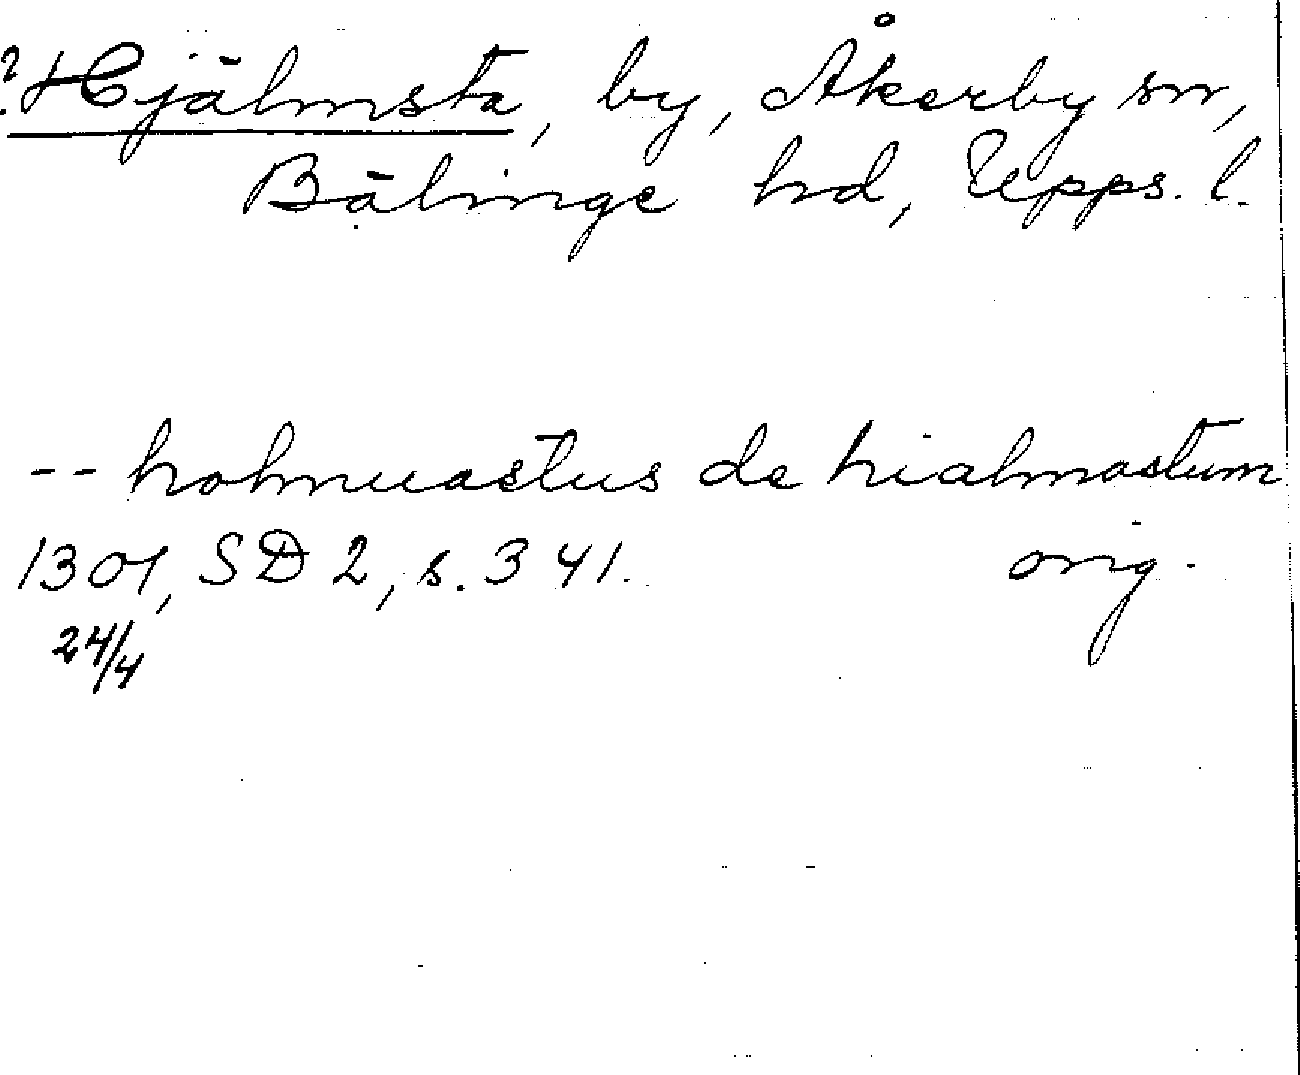 ? Hjälmsta, by, Åkerby sn,
Bälinge hd, Upps. l.
-- holmuastus de hialmastum
1301, SD 2, s. 341. orig.
24/4